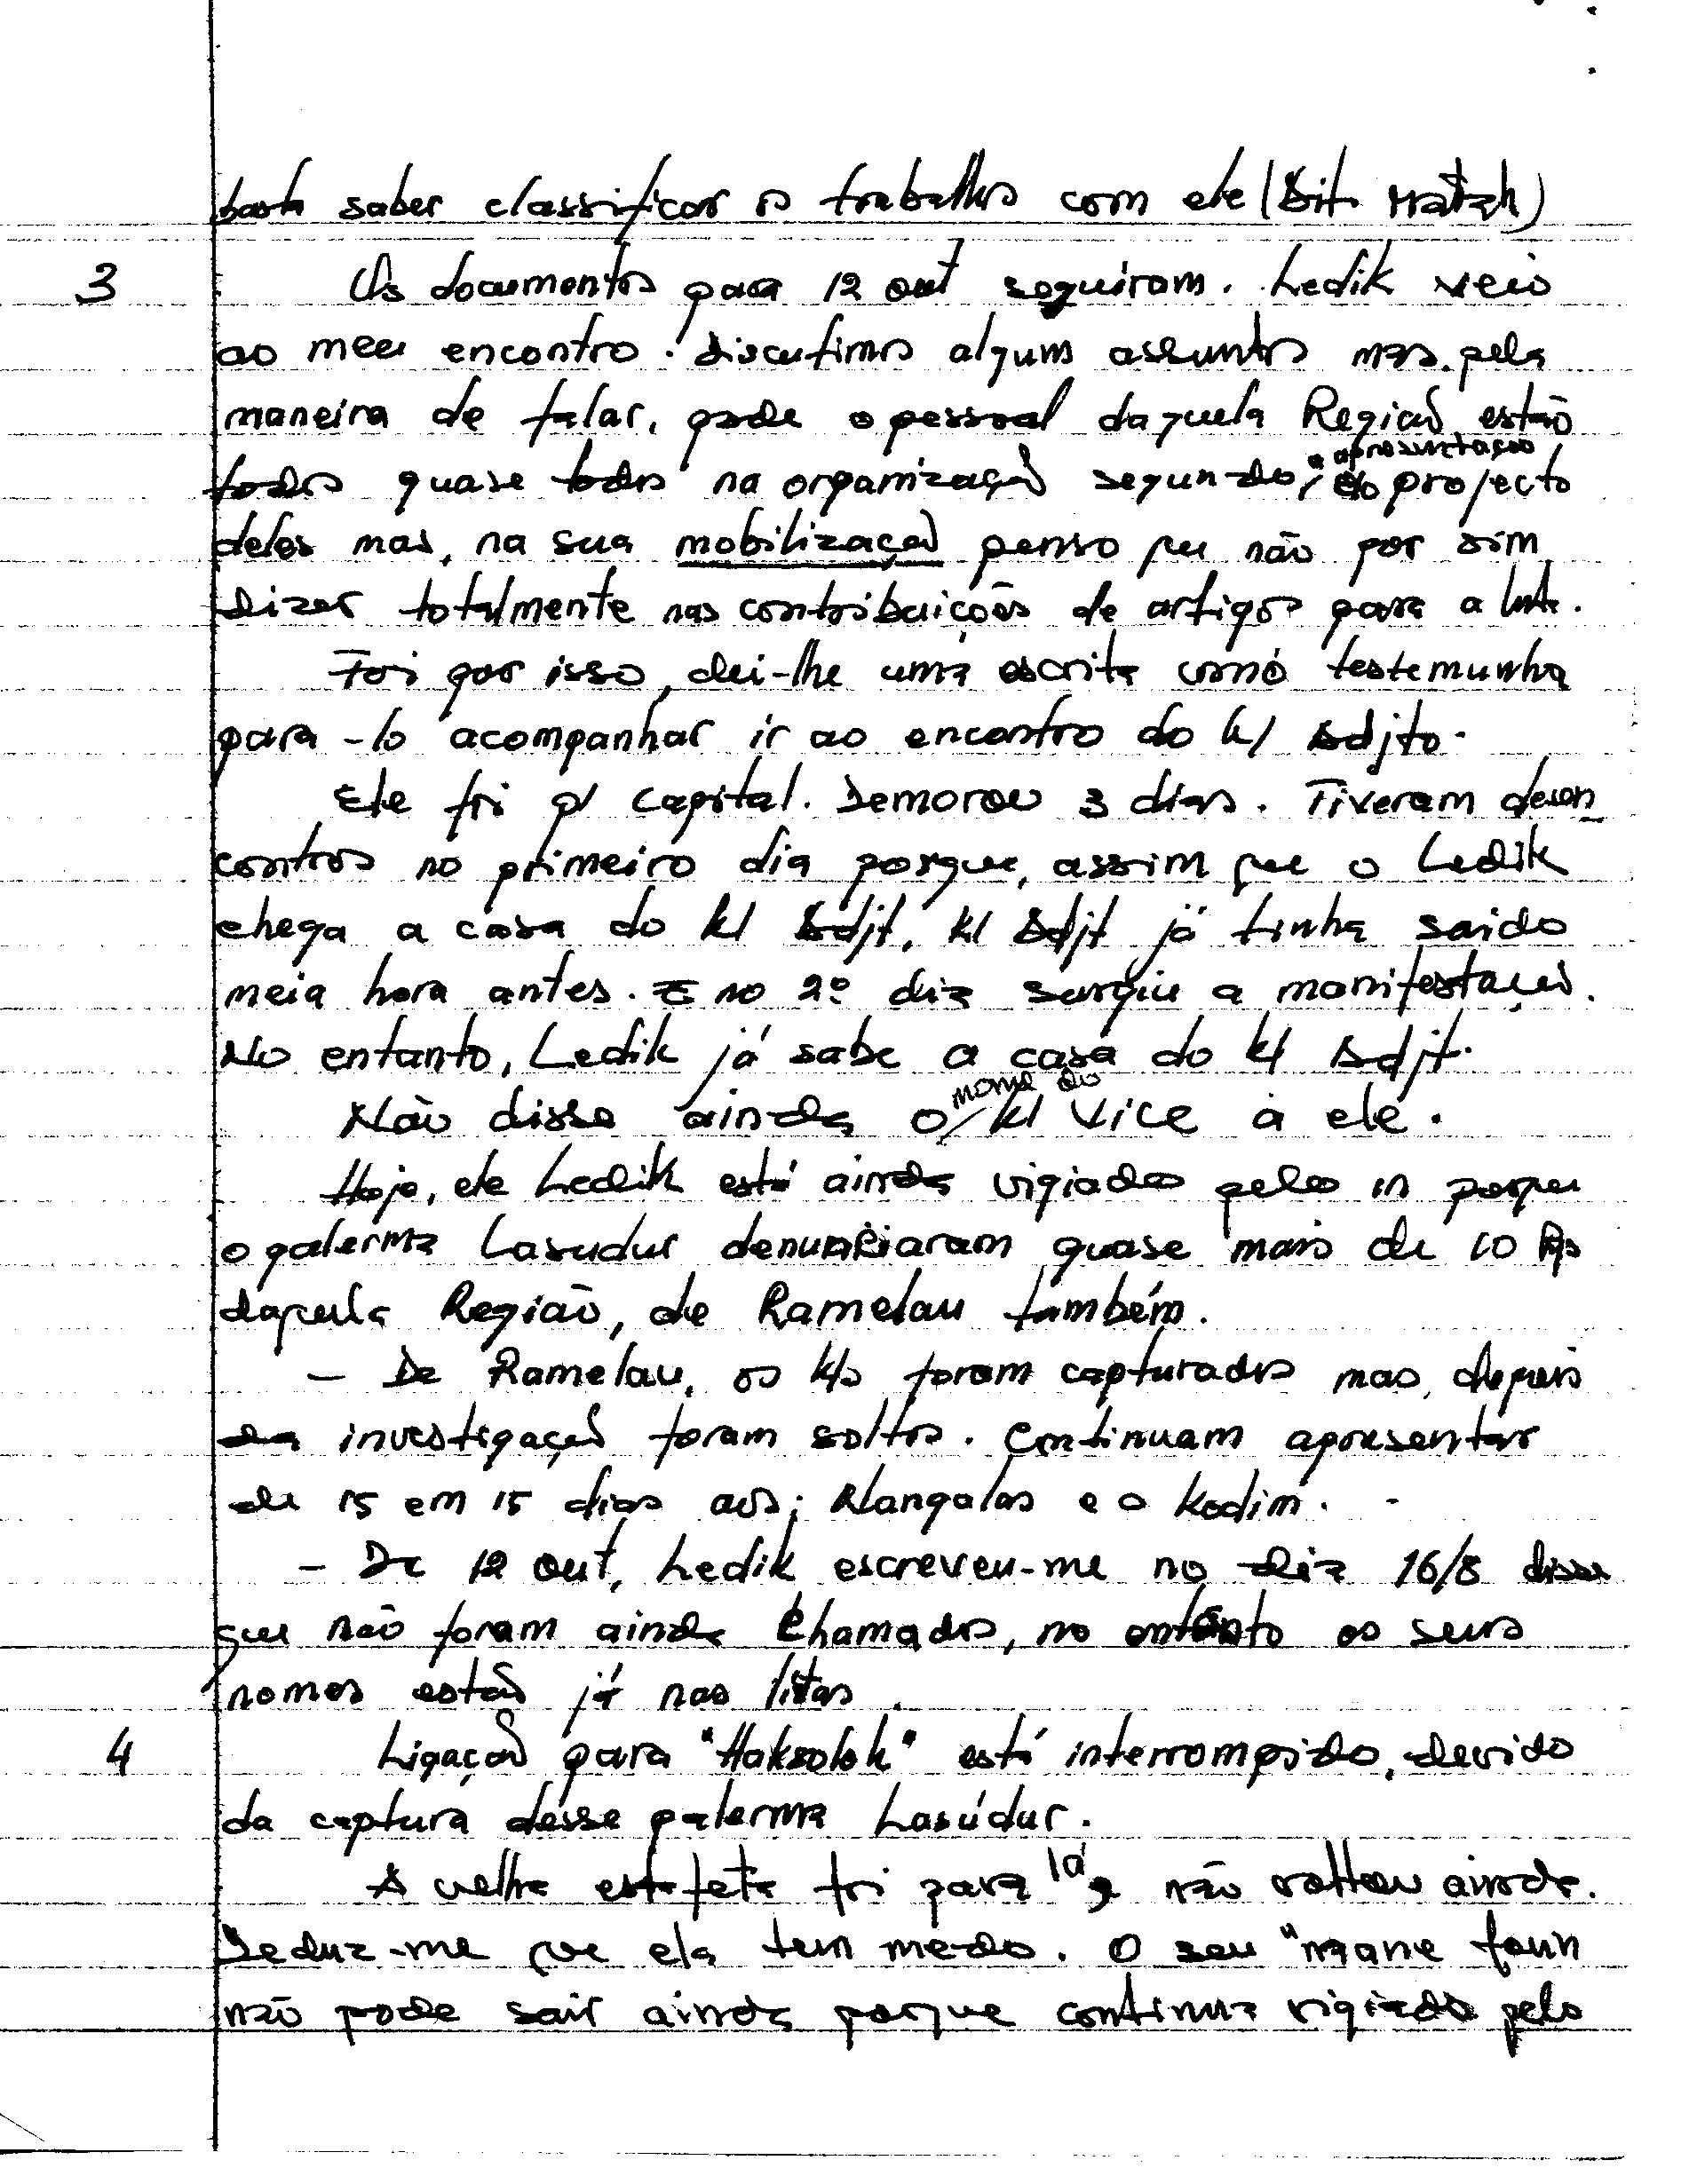 basta saber classificar os trabalhos com ele (Dit. Matak)
3 Os documentos para 12 out seguiram. Ledik veio
ao meu encontro. discutimos algum assuntos mas. pela
maneira de falar, o pessoal daquela Região estão
todos quase todos na organização segundo, a apresentação do projecto
deles mas, na sua mobilização penso que não por sim
dizer totalmente nas contribuições de artigos para a luta.
Foi por isso, dei-lhe uma escrita como testemunha
para-lo acompanhar ir ao encontro do k/ Adjto.
Ele foi p/ Capital. Demorou 3 dias. Tiveram desen
contros no primeiro dia porque, assim que o Ledik
chega a casa do k/ Adjt, k/ Adjt já tinha saido
meia hora antes. E no 2º dia surgiu a manifestação.
No entanto, Ledik já sabe a casa do k/ Adjt.
Não disse ainda o nome do k/ Vice à ele.
Hoje, ele Ledik está ainda vigiado pelo in porque
o palerma Lasudur denunciaram quase mais de 10
daquela Região, de Ramelau também.
- De Ramelau, os k/s foram capturados mas, depois
da investigação foram soltos. Continuam apresentar
de 15 em 15 dias aos; Nangalas e o Kodim.
- De 12 out, Ledik escreveu-me no dia 16/8 disse
que não foram ainda chamados, no entanto os seus
nomes estão já nas listas.
4 Ligação para "Haksolok" está interrompido, devido
da captura desse palerma Lasúdur.
A velha estafeta foi para lá e não voltou ainda.
Deduz-me que ela tem medo. O seu "mane foun
não pode sair ainda porque continua vigiado pelo